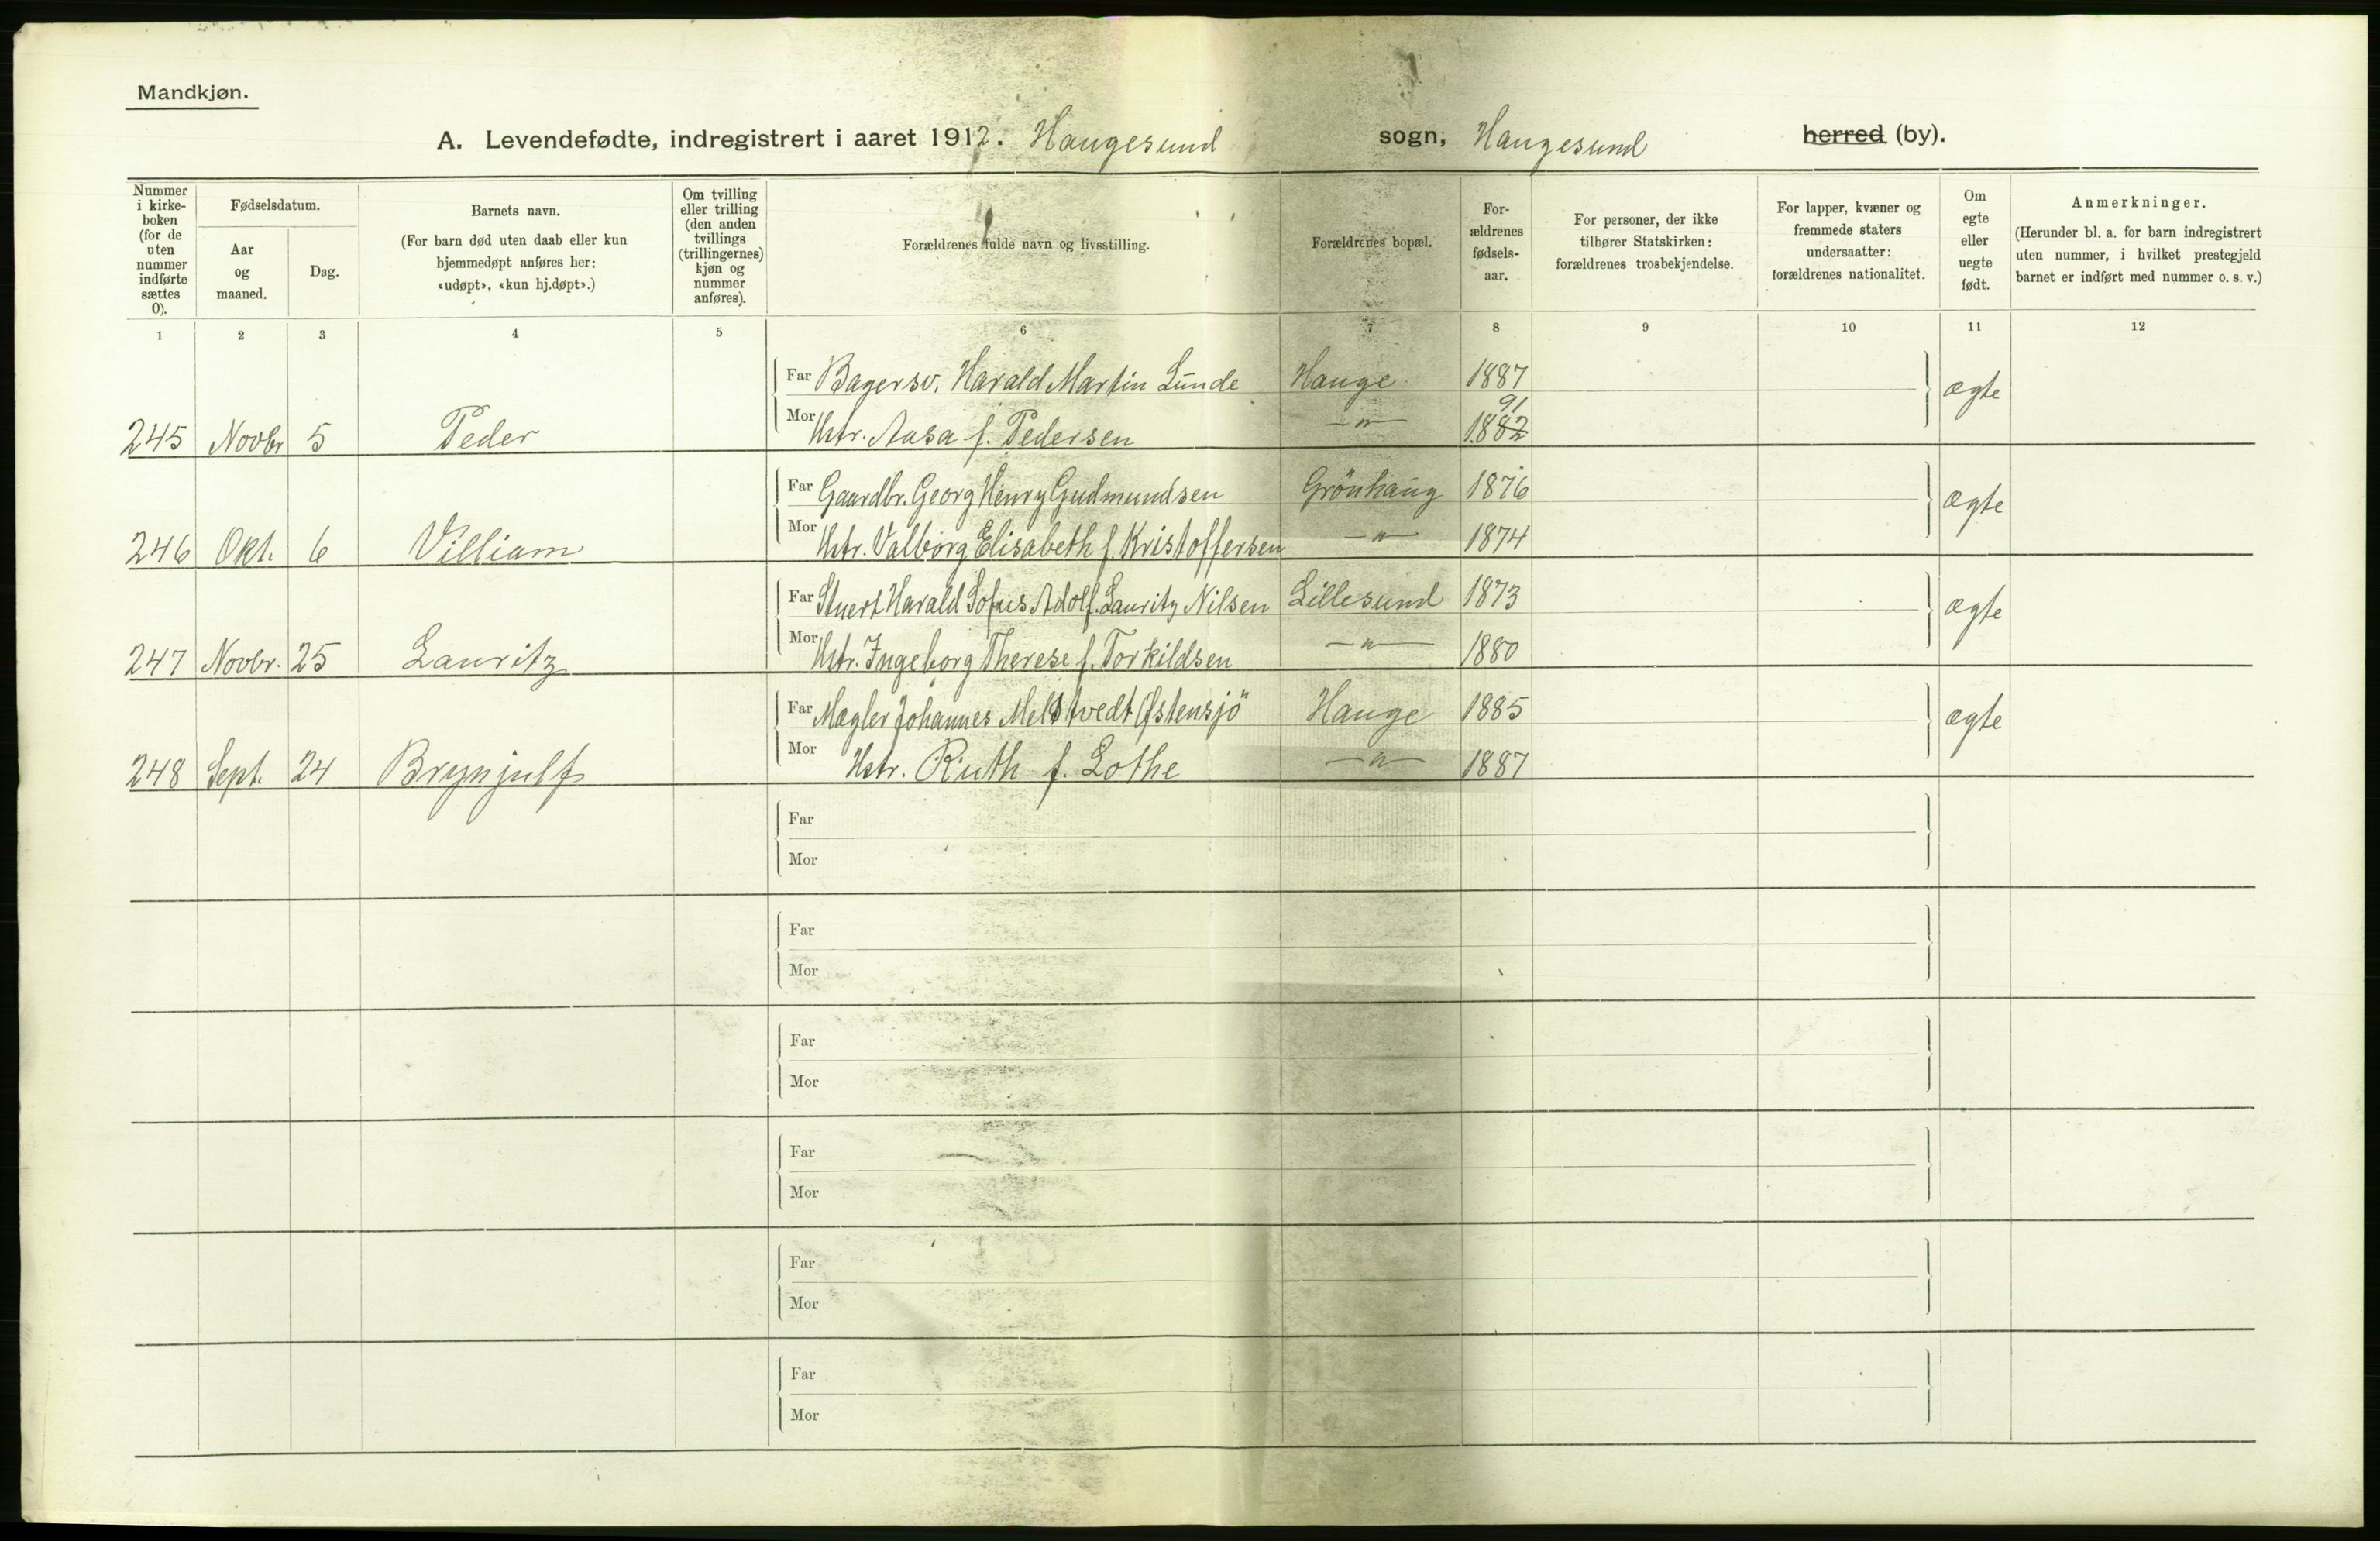 Mandkjøn.
A. Levendefødte, indregistrert i aaret 1912. Haugesund sogn, Haugesund herred (by).
Nummer i kirkeboken (for de uten nummer indførte sættes 0).
Fødselsdatum.
Aar og maaned.
Dag.
Barnets navn.
(For barn død uten daab eller kun hjemmedøpt anføres her: «udøpt», «kun hj.døpt».)
Om tvilling eller trilling (den anden tvillings (trillingernes) kjøn og nummer anføres).
Forældrenes fulde navn og livsstilling.
Forældrenes bopæl.
Forældrenes fødselsaar.
For personer, der ikke tilhører Statskirken: forældrenes trosbekjendelse.
For lapper, kvæner og fremmede staters undersaatter: forældrenes nationalitet.
Om egte eller uegte født.
Anmerkninger.
(Herunder bl. a. for barn indregistrert uten nummer, i hvilket prestegjeld barnet er indført med nummer o. s. v.)
1 2 3 4 5 6 7 8 9 10 11 12
Far Bagersv. Harald Martin Lunde Hauge 1887 ægte
91
245 Novbr 5 Peder Mor Hstr. Aasa f. Pedersen —"— 1882
Far Gaardbr. Georg Henry Gudmundsen Grönhaug 1876 ægte
246 Okt. 6 Villiam Mor Hstr. Valborg Elisabeth f. Kristoffersen —"— 1874
Far Stuert Harald Sofus Adolf Lauritz Nilsen Lillesund 1873 ægte
247 Novbr. 25 Lauritz Mor Hstr. Ingeborg Therese f. Torkildsen —"— 1880
Far Mægler Johannes Østensjö Hauge 1885 ægte
248 Sept. 24 Brynjulf Mor Hstr. Ruth f. Lothe —"— 1887
Far
Mor
Far
Mor
Far
Mor
Far
Mor
Far
Mor
Far
Mor